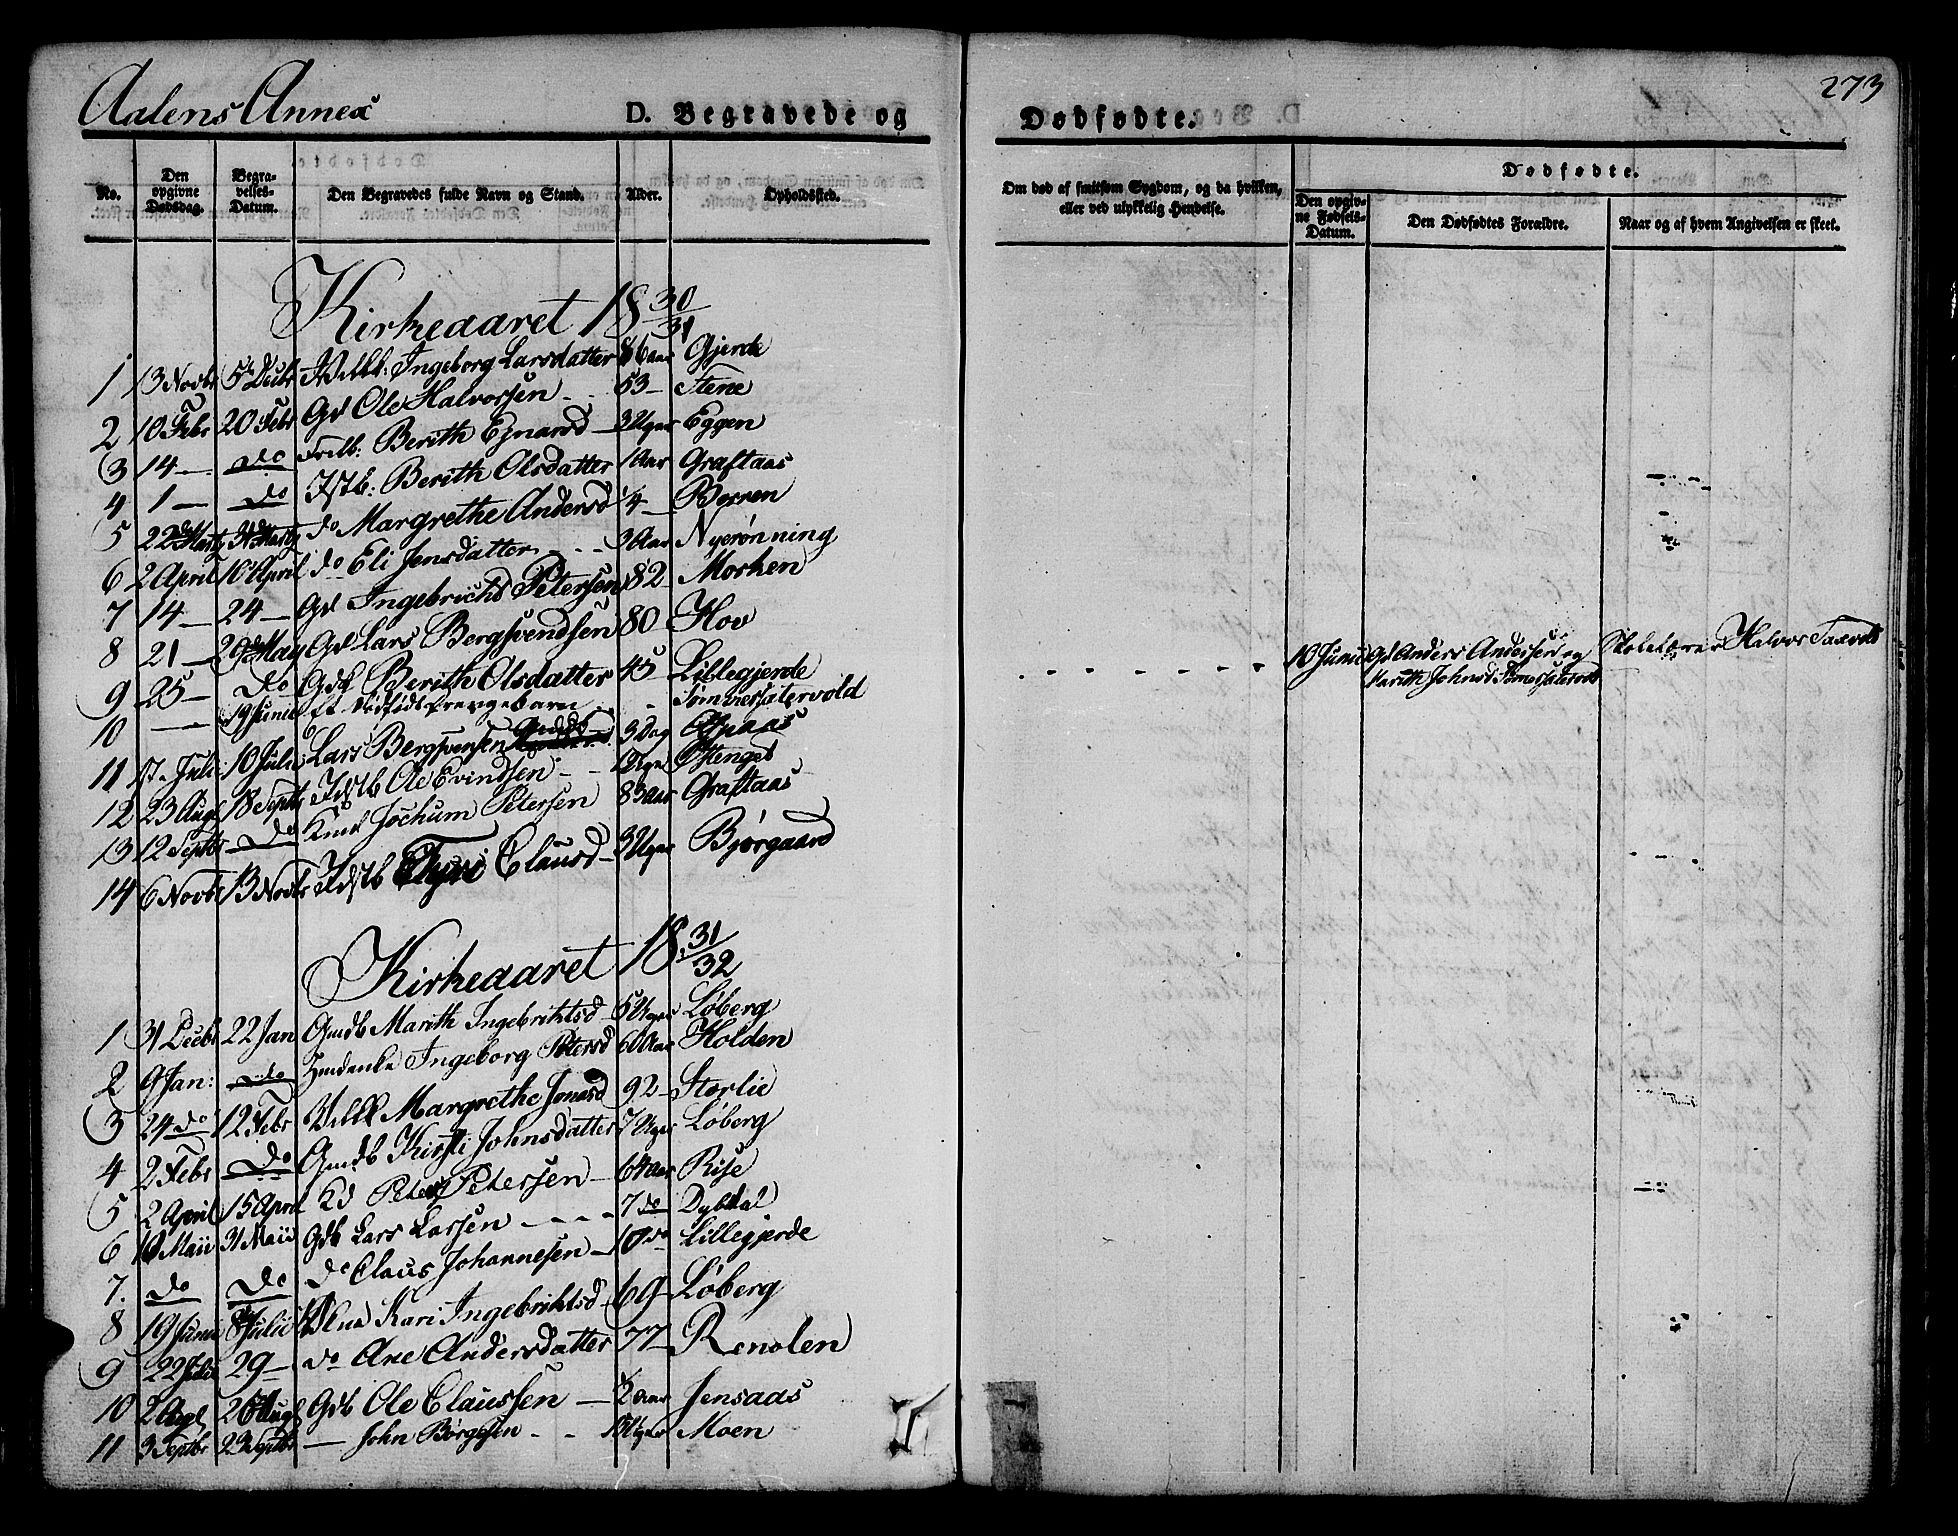 Aalens Annex
D. Begravede og
Dødfødte.
273
No.
Den opgivne Dødsdag.
Begravelses-Datum.
Den Begravedes fulde Navn og Stand.
Alder.
Opholdssted.
Om død af smitsom Sygdom, og da hvilken, eller ved ulykkelig Hendelse.
Dødfødte.
Den opgivne Fødsels-Datum.
Den Dødfødtes Forældre.
Naar og af hvem Angivelsen er skeet.
Kirkeaaret 18 30/31
1 13 Novbr 5 Decbr Ingeborg Larsdatter 66 aar Gjerde
2 10 Febr 20 Febr Gd Ole Halvorssen 53 Stene
3 14 — Do Berith Ejnarsd 3 Uger Eggen
4 1 — Do Berith Olsdatter 1 Aar Graftaas
5 22 Marty 31 Marty do Margrethe Andersd 1/4 Borren
6 2 April 10 April do Eli Jensdatter 3 Aar Nyerønning
7 14 — 24 — Gd Ingebricht Petersen 82 Morken
8 21 — 29 May Gd Lars Bergsvendsen 80 Hov
9 25 — Do Berith Olsdatter 45 Lillegjerde
10 — 19 Junii et
10 Junii Gd Anders Andersen og Skolelærer Halvor Taxvold
Marith Johnsd
11 17 Juli 10 Julii Lars Bergsvensen 3 Dag
12 23 Augl 18 Septbr Ole Evindsen Stenget
13 12 Septbr Do Jochum Petersen 83 aar Graftaas
14 6 Novbr 13 Novbr Clausd 3 Uger Bjørgaard
Kirkeaaret 18 31/32
1 31 Decbr 22 Jan Gmdb Marith Ingebriktsd 5 Uger Løberg
2 9 Jan: do Ingeborg Petersd 60 Aar Holden
3 24 do 12 Febr Margrethe Jonasd 92 — Storlie
4 2 Febr Do Gmdb Kirsti Johnsdatter 7 Uger Løberg
5 2 April 15 April Peter Petersen 64 aar Rise
6 10 Maii 31 Maii Gdb Lars Larsen 7 do Dybdal
7. do Do Do Claus Johannesen 10 do Lillegjerde
8 19 Junii 8 Julii Kari Ingebriktsd 69 Løberg
9 22 Julii 29 — do Ane Andersdatter 77 — Renolen
10 2 Augl 26 Augl Gdb Ole Claussen 1/2 aar Jensaas
11 3 Septbr 23 Septbr — John Børgesen Moen